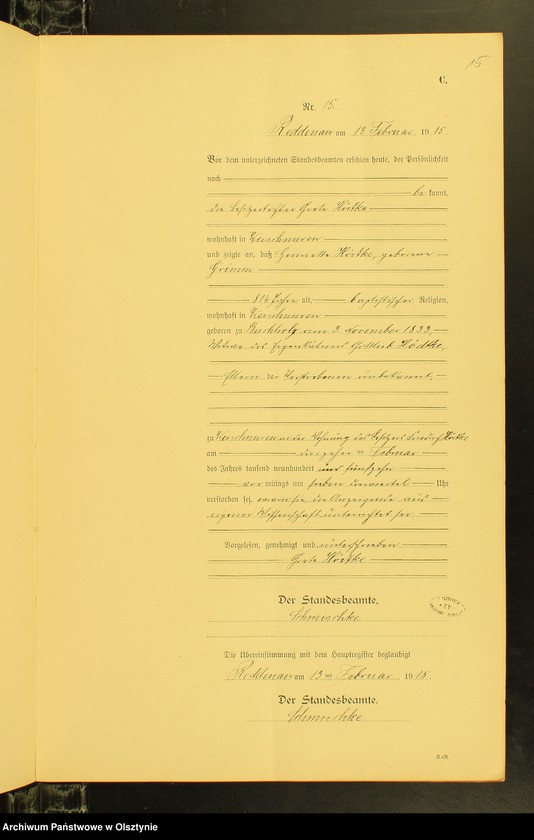 15
C.
Nr. 15.
Reddenau am 13 Februar 1915.
Vor dem unterzeichneten Standesbeamten erschien heute, der Persönlichkeit
nach
be kannt,
die Besitzertochter Grete Hödtke
wohnhaft in
und zeigte an, daß Henriette Hödtke, geborene
Grimm
81 Jahre alt, baptistischer Religion,
wohnhaft in
geboren zu Buchholz am 3. November 1833,
Witwe des Eigenkätners Gottlieb Hödtke,
Eltern der Verstorbenen unbekannt,
zu in der Wohnung des Besitzers Friedrich Hödtke
am dreizehn ten Februar
des Jahres tausend neunhundert und fünfzehn
vor mittags um sieben dreiviertel Uhr
verstorben sei, wovon sie die Anzeigende aus
eigener Wissenschaft unterrichtet sei
Vorgelesen, genehmigt und unterschrieben
Grete Hödtke
Der Standesbeamte.
Schmischke
Die Übereinstimmung mit dem Hauptregister beglaubigt
Reddenau am 13 ten Februar 1915.
Der Standesbeamte.
Schmischke
Archiwum Państwowe w Olsztynie